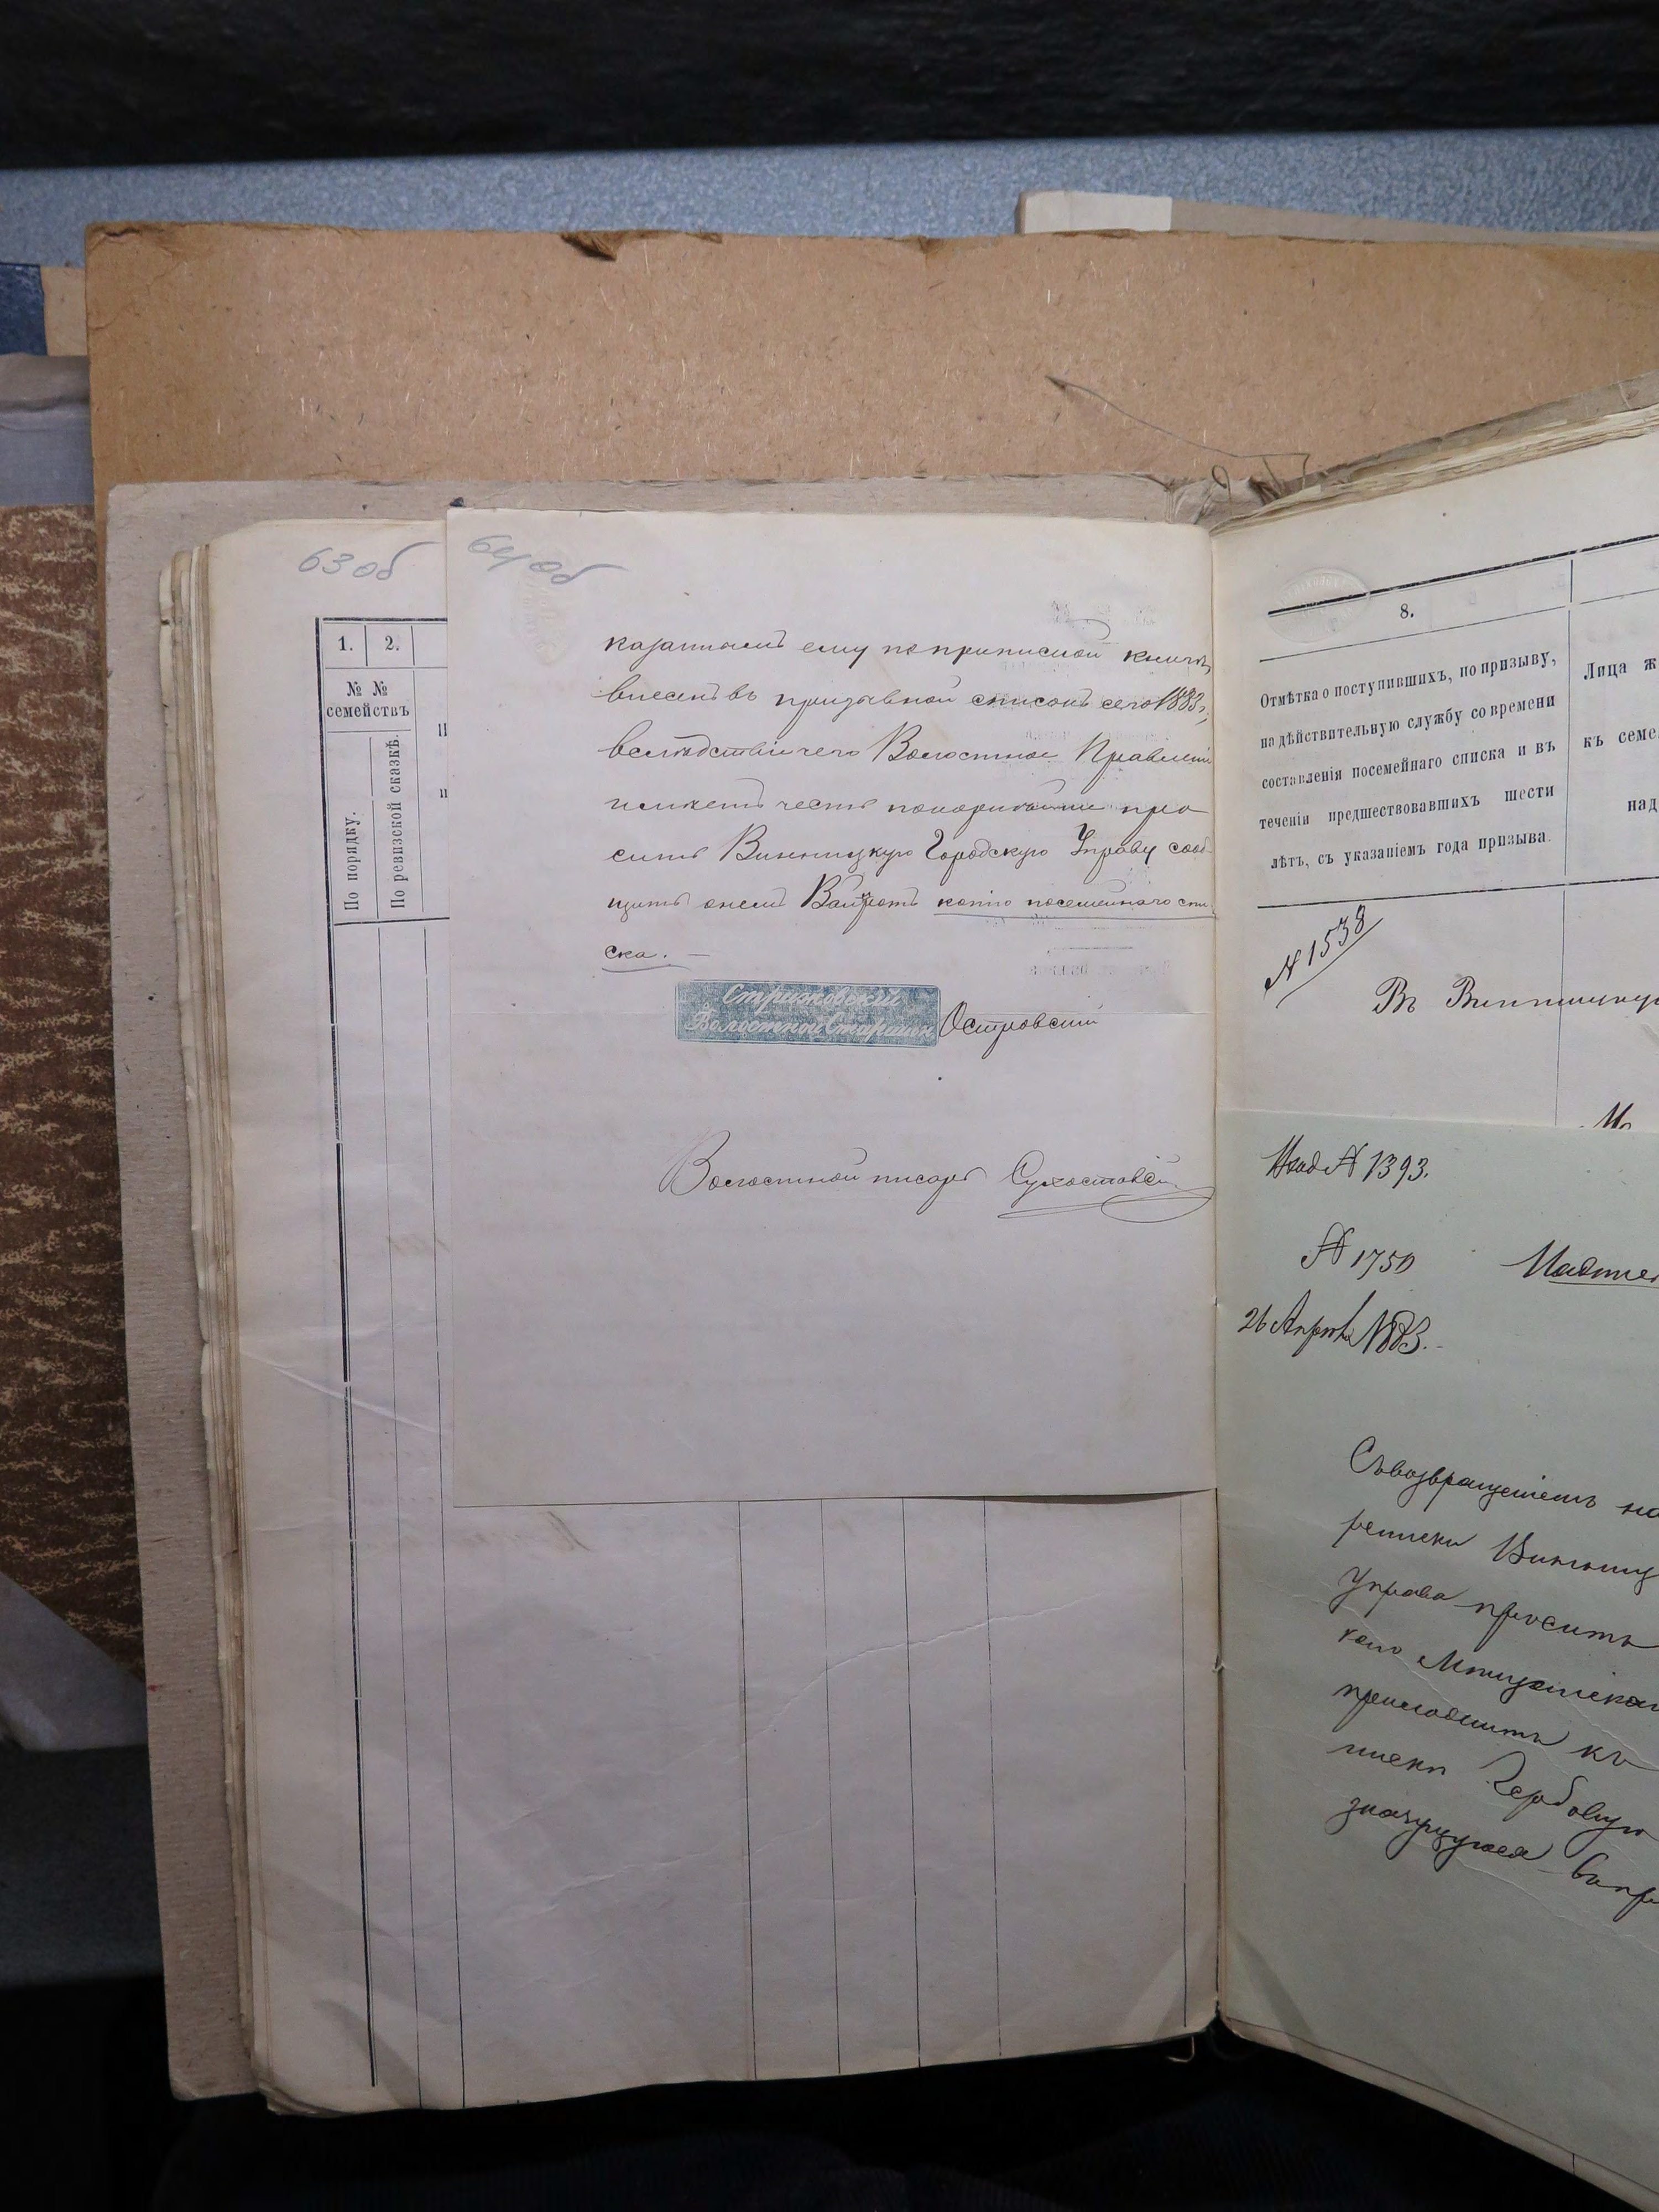 63 об
64 об
1. 2.
№ №
семействъ
По порядку.
По ревизской сказкѣ.
казаннымъ ему по приписной книгѣ,
внесенъ въ призывной списокъ сего 1883 г.,
вслѣдствіи чего Волостное Правленіе
имѣетъ честь покорнѣйше про
сить Винницкую Городскую Управу сооб-
щить о немъ Вайротъ копію посемейнаго спи-
ска. —
Стрижовскій
Волостной Старшина Островскій
Волостной писарь
8.
Отмѣтка о поступившихъ, по призыву,
на дѣйствительную службу со времени
составленія посемейнаго списка и въ
теченіи предшествовавшихъ шести
лѣтъ, съ указаніемъ года призыва.
Лица ж
къ семе
над
№ 1538
Въ Винницкую
№ 1393.
№ 1750
26 Апрѣля 1883.
Съ возвращеніемъ на
реписки Винниц
Управа проситъ
кого Мѣщанскаго
приложить къ
писки Гербовую
значущуюся въ пре